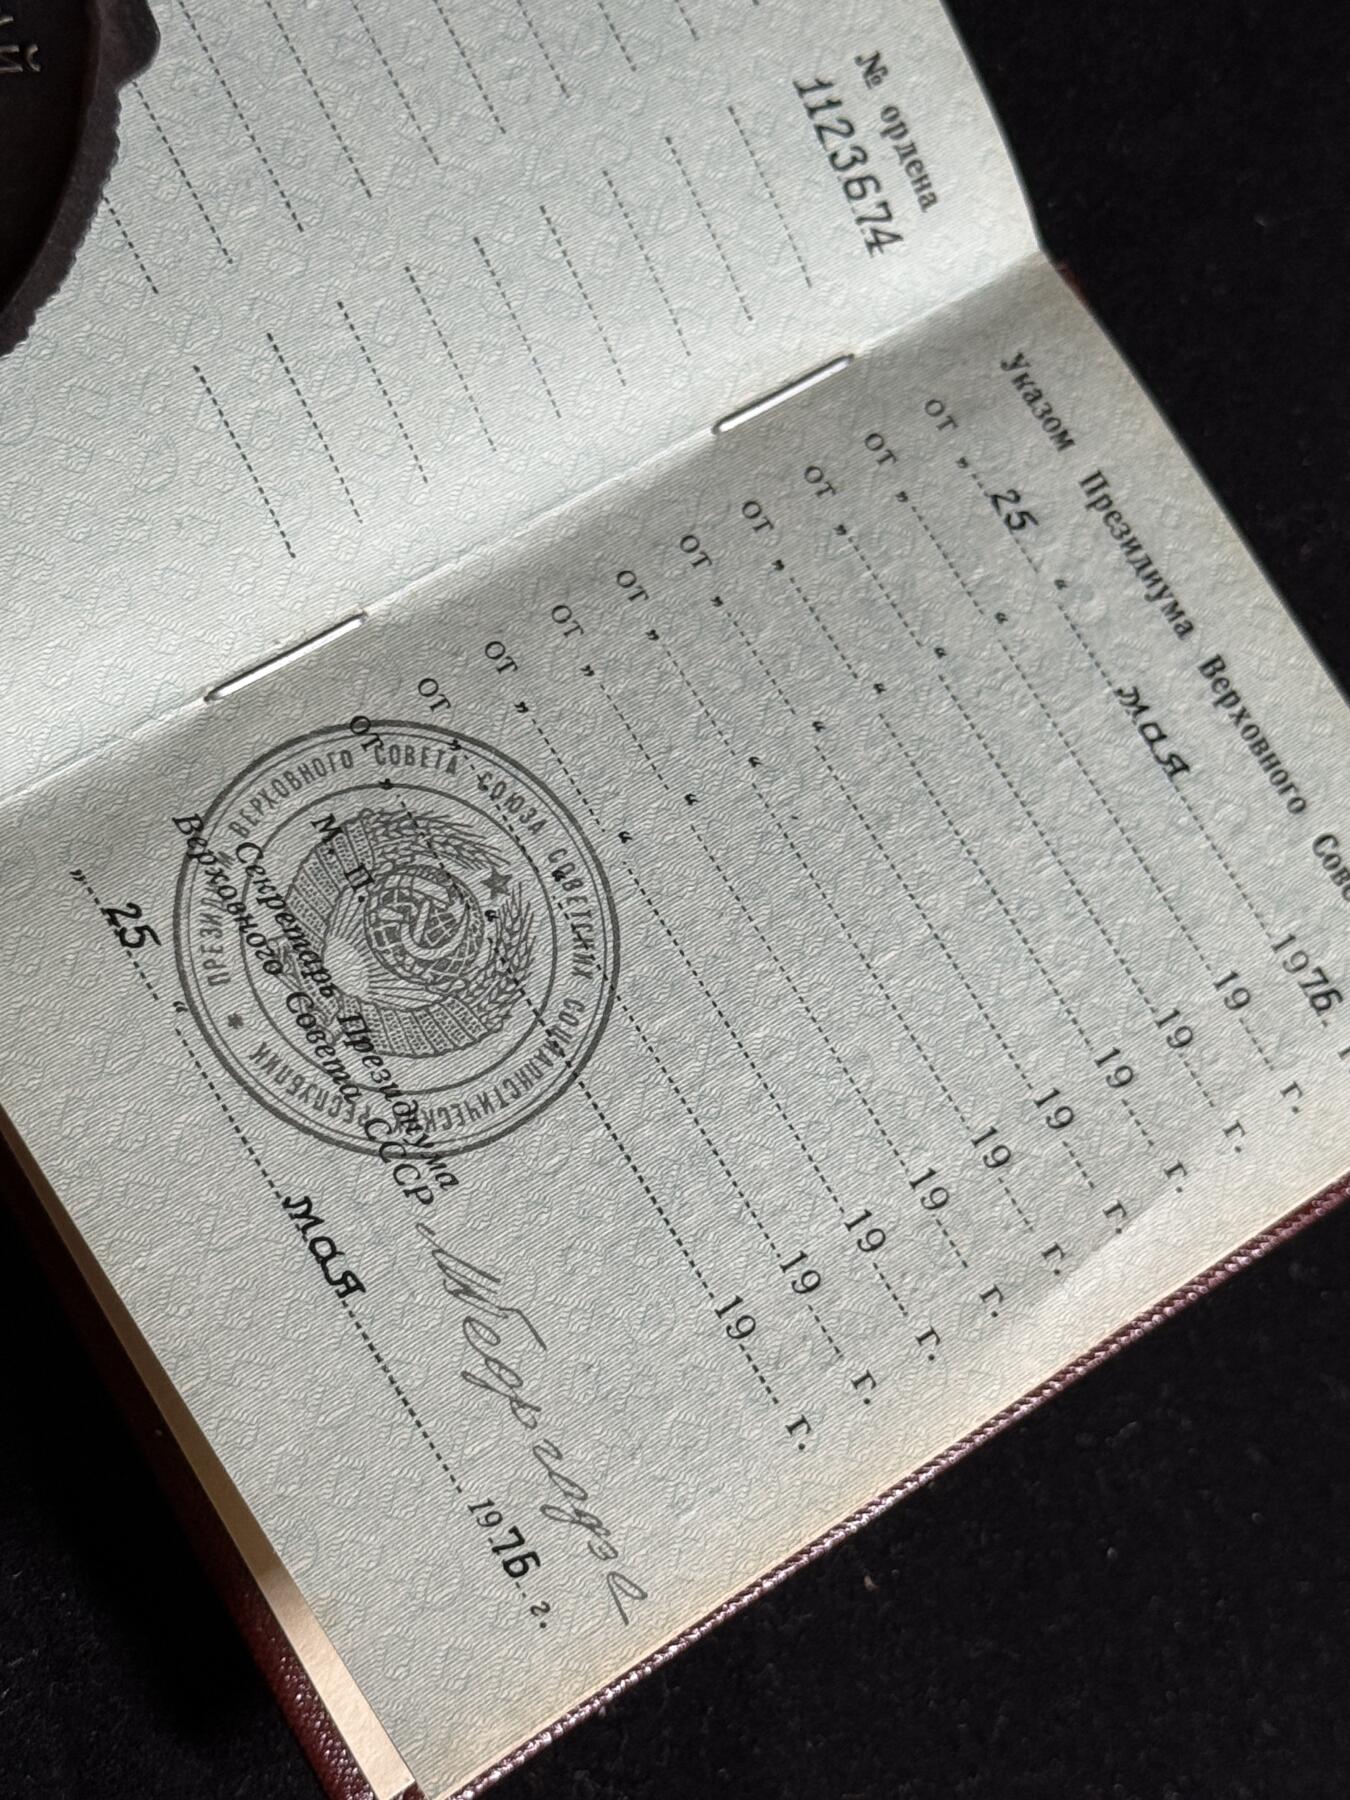 № ордена
1123674
Указом Президиума Верховного Сове
от „ 25 “ мая 1976.
от „ “ 19 г.
от „ “ 19 г.
от „ “ 19 г.
от „ “ 19 г.
от „ “ 19 г.
от „ “ 19 г.
от „ “ 19 г.
от „ “ 19 г.
от „ “ 19 г.
М. П.
ПРЕЗИДИУМ ВЕРХОВНОГО СОВЕТА СОЮЗА СОВЕТСКИХ СОЦИАЛИСТИЧЕСКИХ РЕСПУБЛИК *
Секретарь Президиума
Верховного Совета СССР
„ 25 “ мая 1976 г.